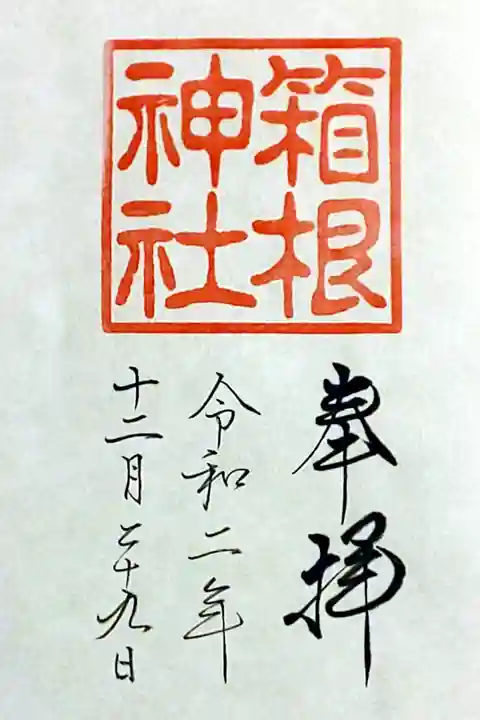 箱根
神社
奉拝
令和二年
十二月二十九日